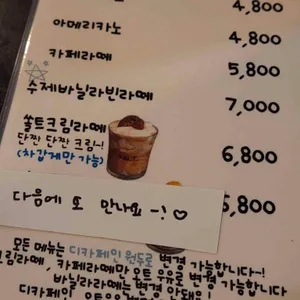 4,800
아메리카노 4,800
카페라떼 5,800
수제바닐라빈라떼 7,000
쏠트크림라떼 6,800
단짠 단짠 크림~!
(차갑게만 가능)
다음에 또 만나요 -! ♡
5,800
모든 메뉴는 디카페인 원두로 변경 가능합니다~!
크림라떼, 카페라떼만 오트 우유로 변경 가능합니다
바닐라라떼는 변경 안돼
디카페인